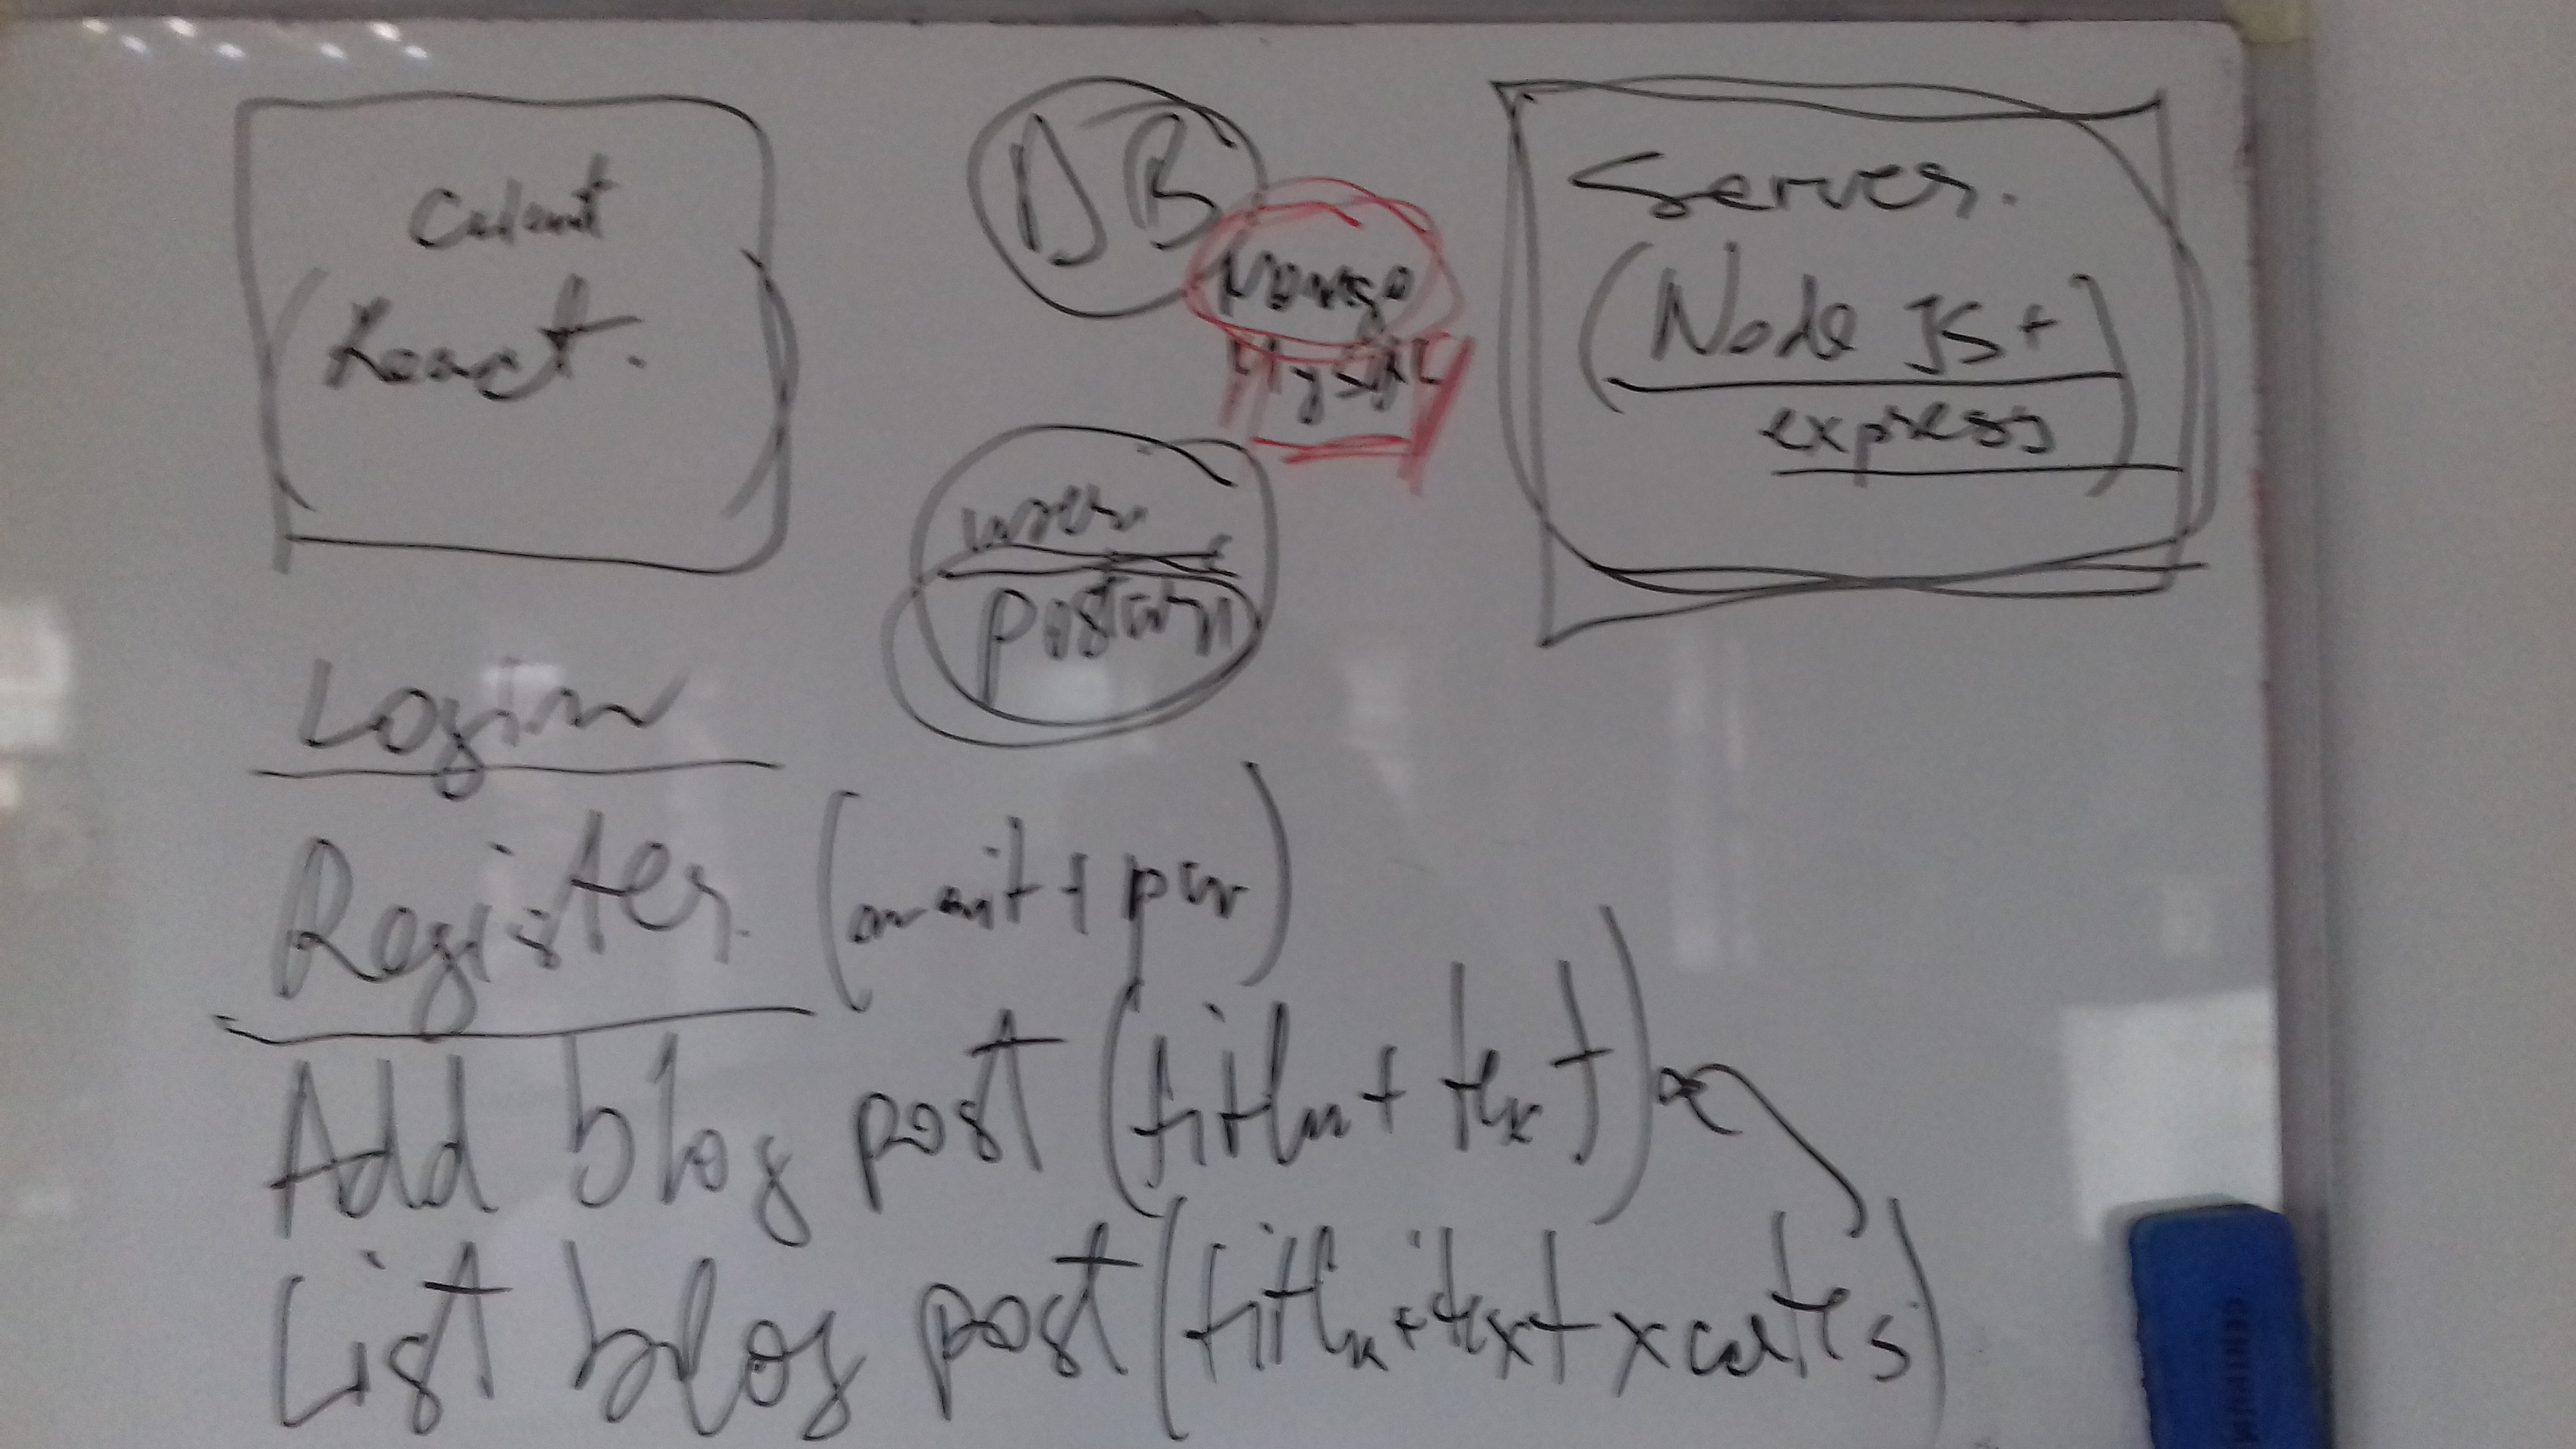 Client
React.
DB
Mongo
MySQL
Server.
(Node JS +
express)
user
Login
Register (email + pw)
Add blog post (title + text)
List blog post (title + text +